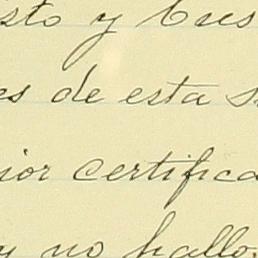 sto y Cues
es de esta s
ior certifica
y no hallo